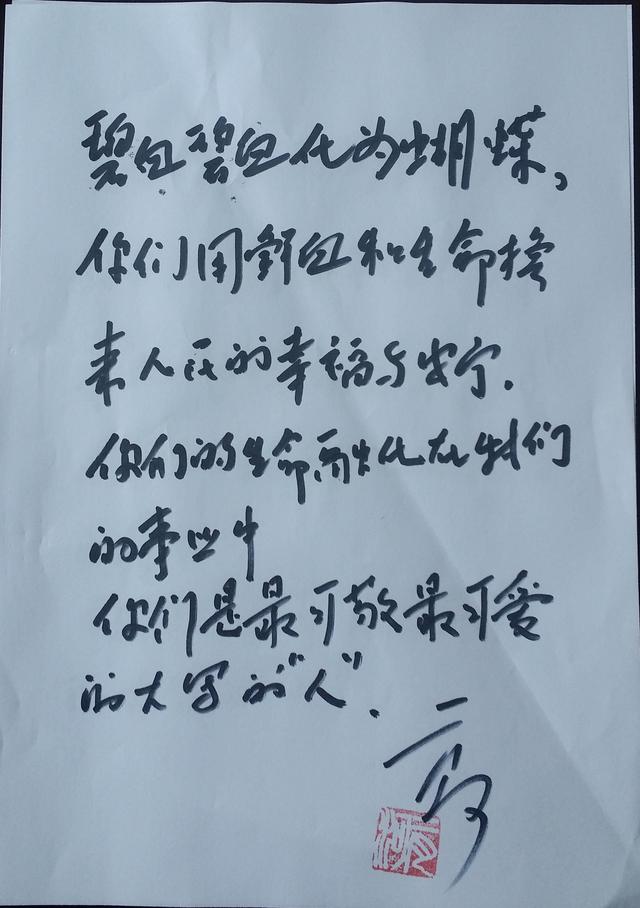 碧血碧血化为蝴蝶,
你们用鲜血和生命换
来人民的幸福与安宁.
你们的生命融化在我们
的事业中
你们是最可敬最可爱
的大写的"人".